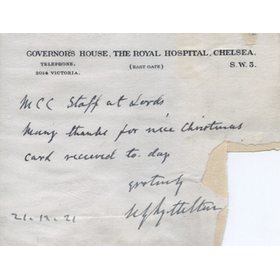 GOVERNOR'S HOUSE, THE ROYAL HOSPITAL, CHELSEA.
TELEPHONE, (EAST GATE) S.W.3.
2014 VICTORIA.
MCC Staff at Lords
Many thanks for nice Christmas
card received to-day
N G Lyttelton
21.12.21